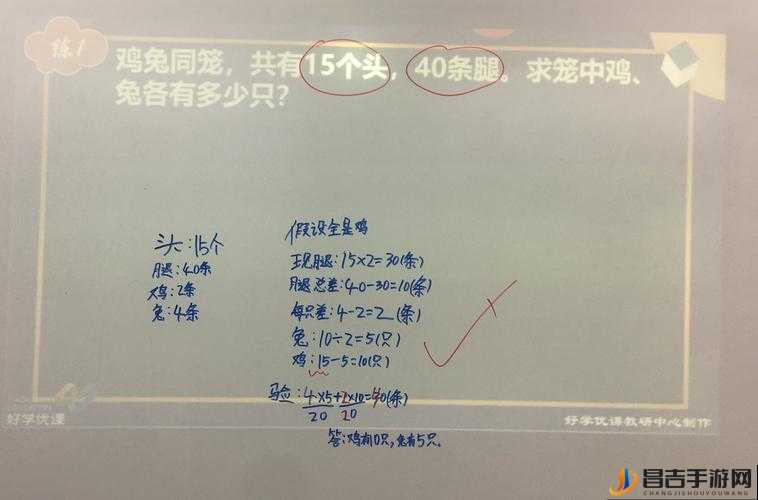 练1
鸡兔同笼，共有15个头，40条腿。求笼中鸡、
兔各有多少只？
头：15个
腿：40条
鸡：2条
兔：4条
假设全是鸡
现腿：15×2=30(条)
腿总差：40-30=10(条)
每只差：4-2=2(条)
兔：10÷2=5(只)
鸡：15-5=10(只)
验：4×5+2×10=40(条)
20 20
答：鸡有10只，兔有5只。
好学优课
好学优课教研中心制作
昌吉手游网
CHANGJISHOUYOUWANG